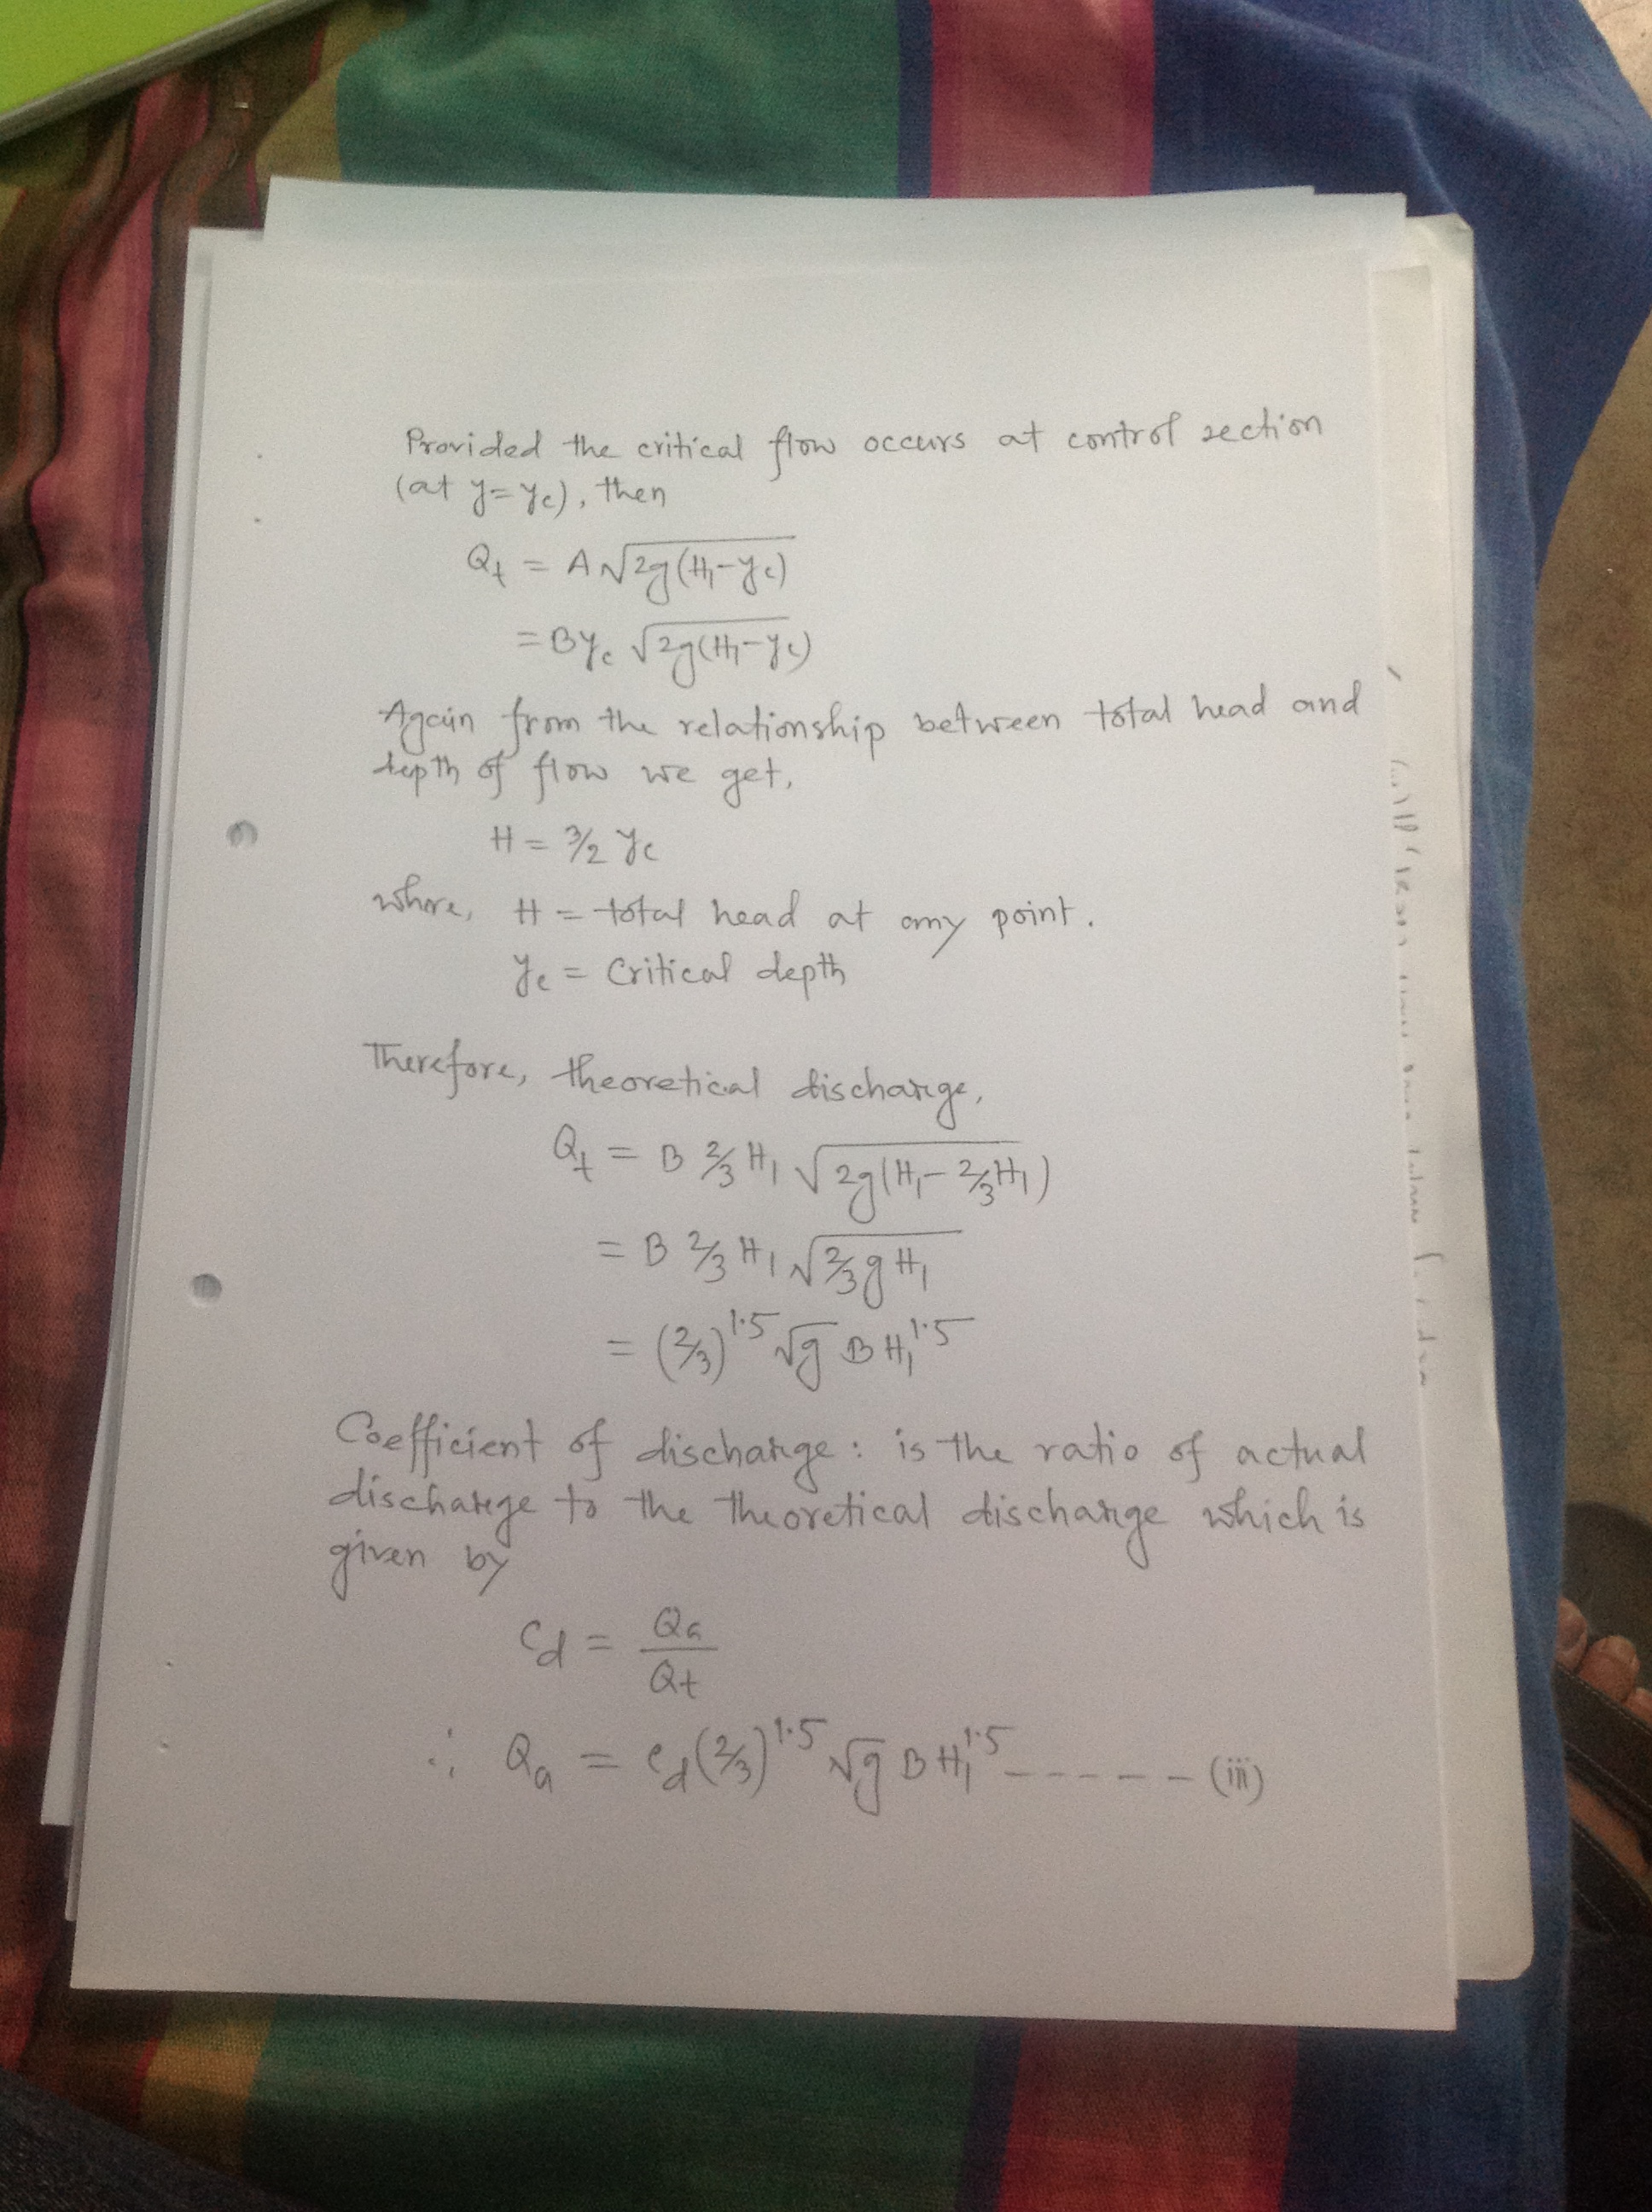 Provided the critical flow occurs at control section
(at y=yc), then
Qt = A√2g(H1-yc)
=Byc √2g(H1-yc)
Again from the relationship between total head and
depth of flow we get,
H = 3/2 yc
where, H = total head at any point.
yc = Critical depth
Therefore, theoretical discharge,
Qt = B 2/3 H1 √2g(H1-2/3H1)
= B 2/3 H1 √2/3 g H1
= (2/3)^1.5 √g B H1^1.5
Coefficient of discharge: is the ratio of actual
discharge to the theoretical discharge which is
given by
Cd = Qa/Qt
∴ Qa = Cd(2/3)^1.5 √g B H1^1.5 ----- (iii)